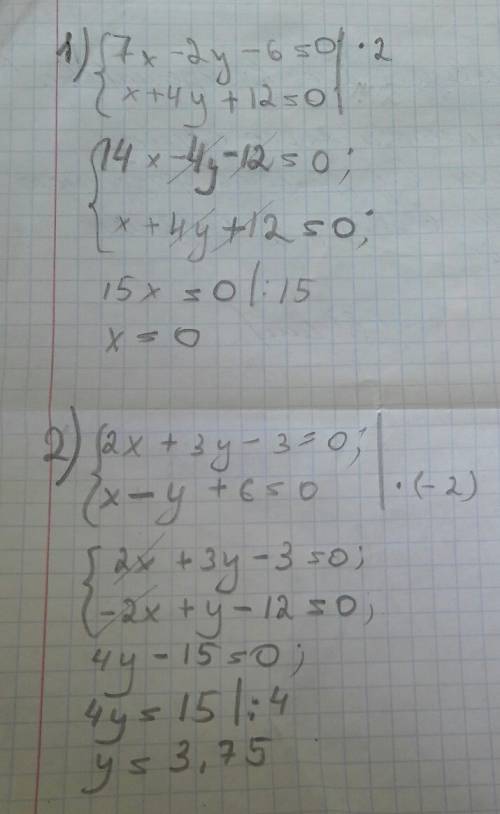 1) { 7x - 2y - 6 = 0 | · 2
x + 4y + 12 = 0
{ 14x - 4y - 12 = 0;
x + 4y + 12 = 0;
15x = 0 |: 15
x = 0
2) { 2x + 3y - 3 = 0;
x - y + 6 = 0 | · (-2)
{ 2x + 3y - 3 = 0;
-2x + y - 12 = 0;
4y - 15 = 0;
4y = 15 |: 4
y = 3,75